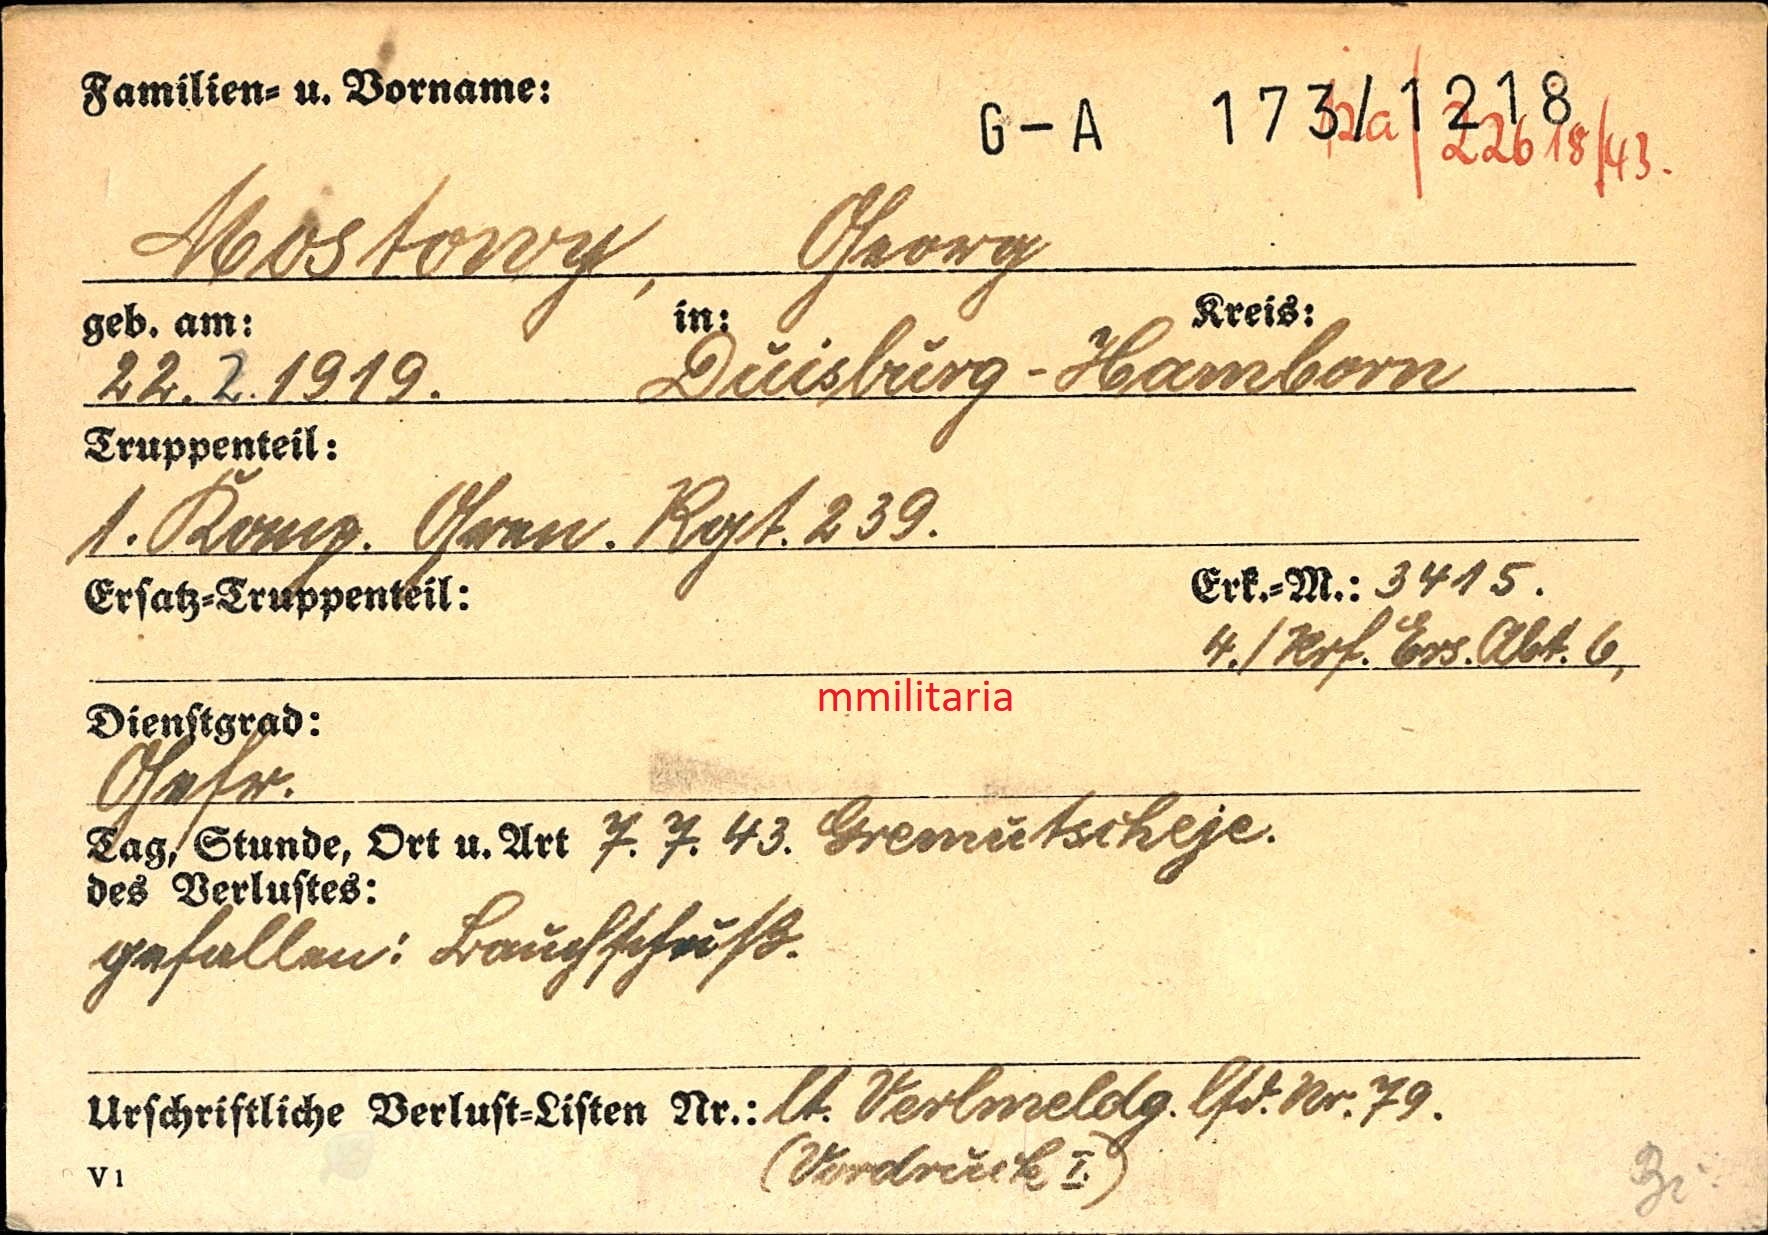 Familien- u. Vorname:
G-A 173/1218
22618/43.
Mostowy, Georg
geb. am: in: Kreis:
22.2.1919. Duisburg-Hamborn
Truppenteil:
1. Komp. Gren. Rgt. 239.
Ersatz-Truppenteil: Erk.-M.: 3415.
4./Krf. Ers. Abt. 6,
mmilitaria
Dienstgrad:
Gefr.
Tag, Stunde, Ort u. Art 7. 7. 43. Gremutscheje.
des Verlustes:
gefallen: Bauchschuß.
Urschriftliche Verlust-Listen Nr.: lt. Verlmeldg. lfd. Nr. 79.
(Vordruck I.)
V 1